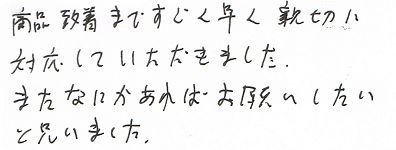 商品到着まですごく早く親切に
対応していただきました.
またなにかあればお願いしたい
と思いました.